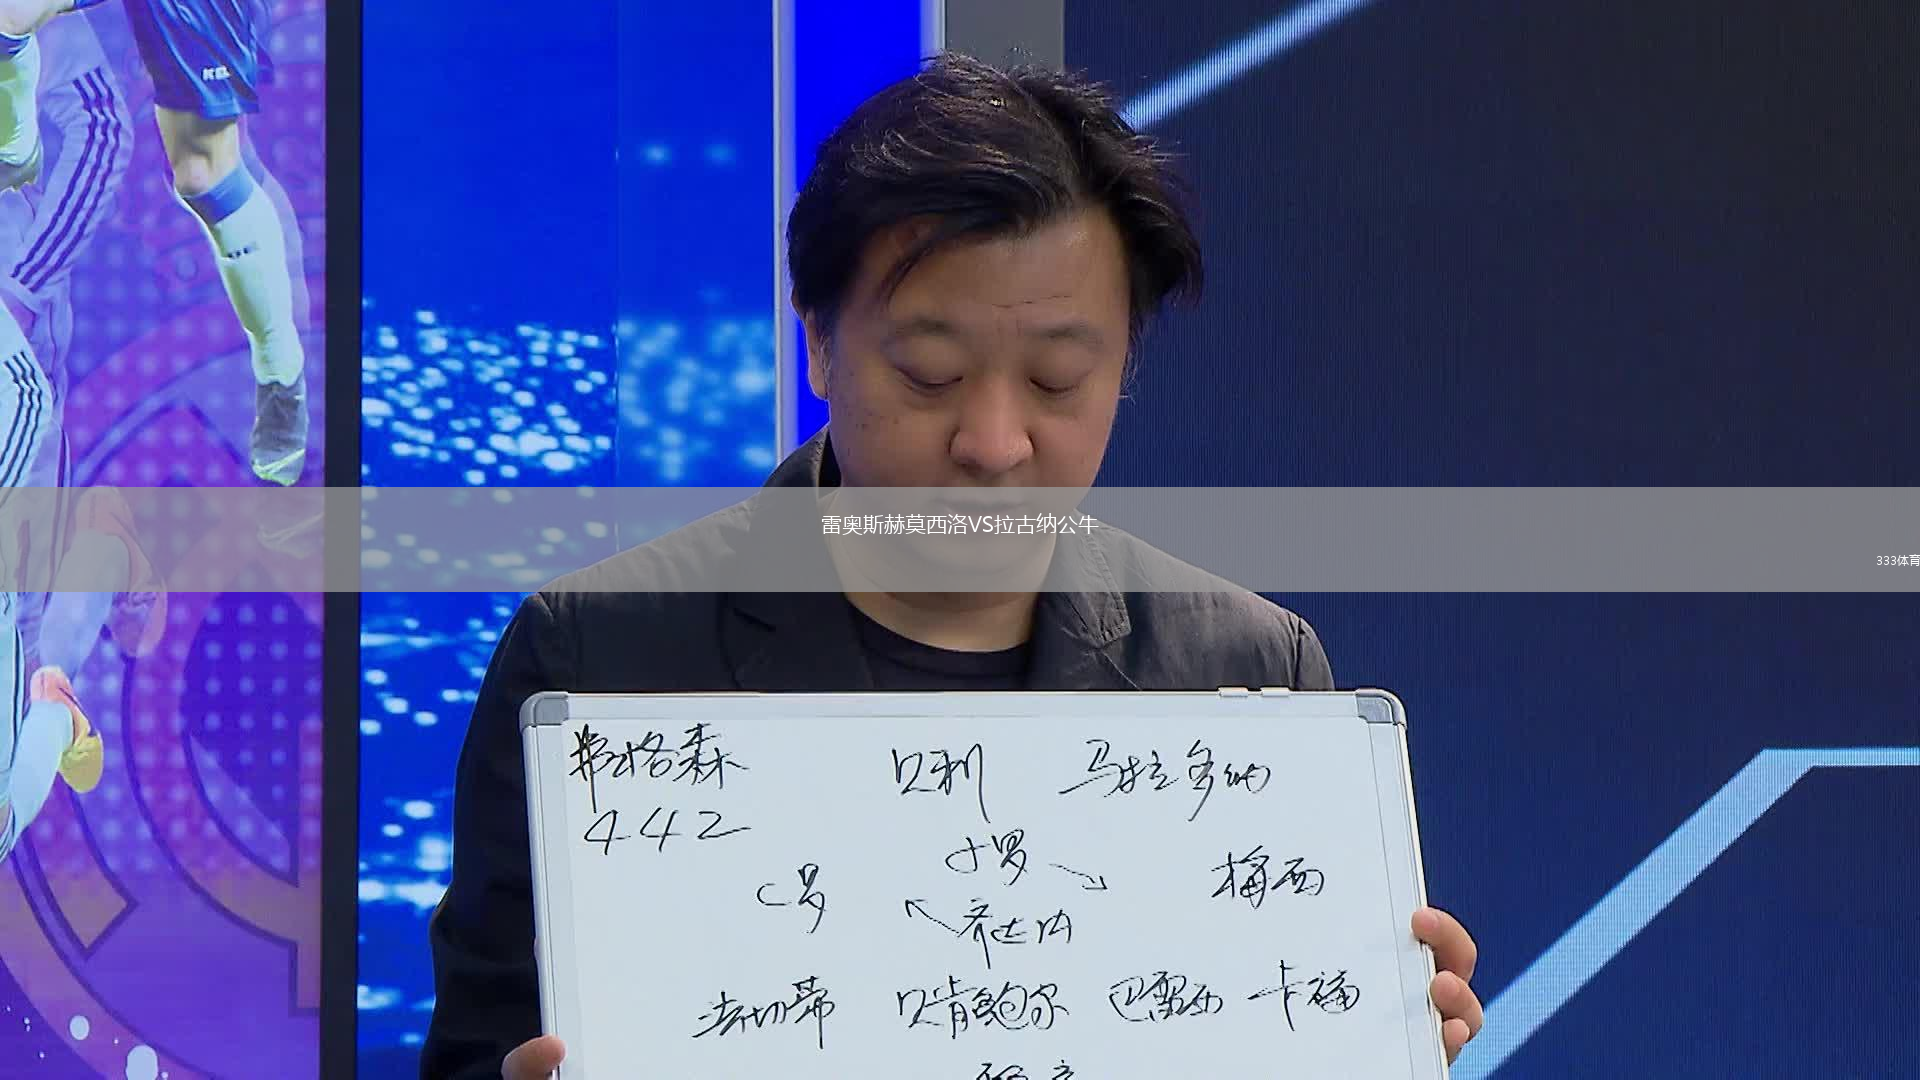 KEL
雷奥斯赫莫西洛VS拉古纳公牛
333体育
弗格森 贝利 马拉多纳
442
小罗
C罗 梅西
齐达内
法切蒂 贝肯鲍尔 巴雷西 卡福